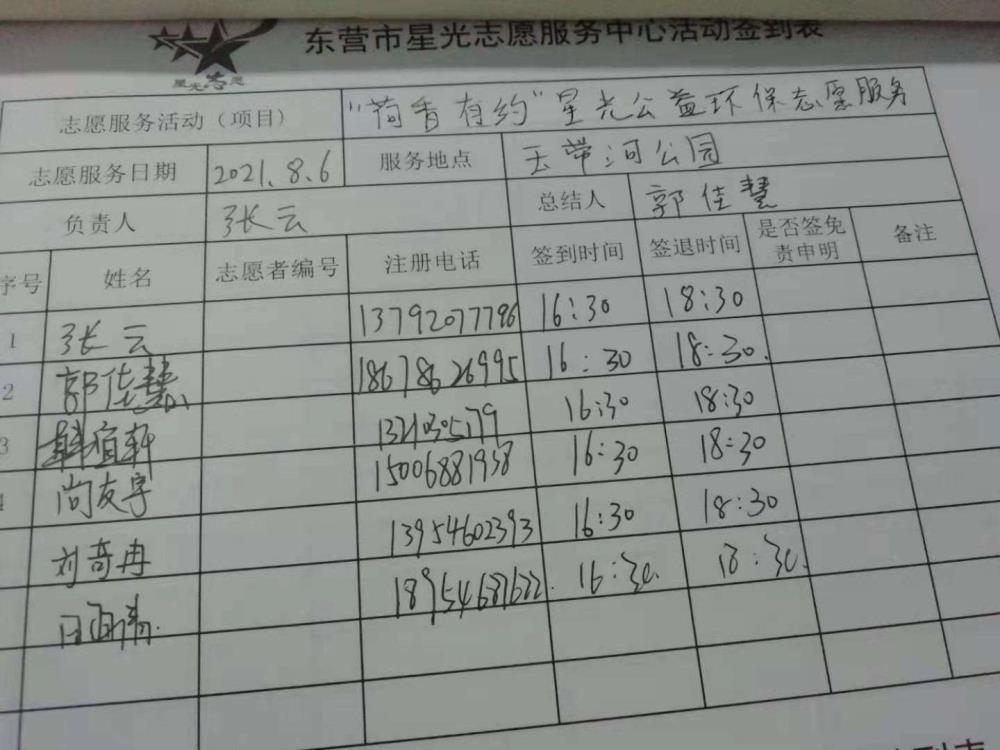 星光志愿
东营市星光志愿服务中心活动签到表
志愿服务活动（项目） "荷香有约"星光公益环保志愿服务
志愿服务日期 2021.8.6 服务地点 玉带河公园
负责人 张云 总结人 郭佳慧
序号 姓名 志愿者编号 注册电话 签到时间 签退时间 是否签免责申明 备注
1 张云 13792077796 16:30 18:30
2 郭佳慧 18678626995 16:30 18:30.
3 韩宜轩 16:30 18:30
4 尚友宇 15006881958 16:30 18:30
刘奇冉 13954602393 16:30 18:30
18954687622. 16:30. 18:30.